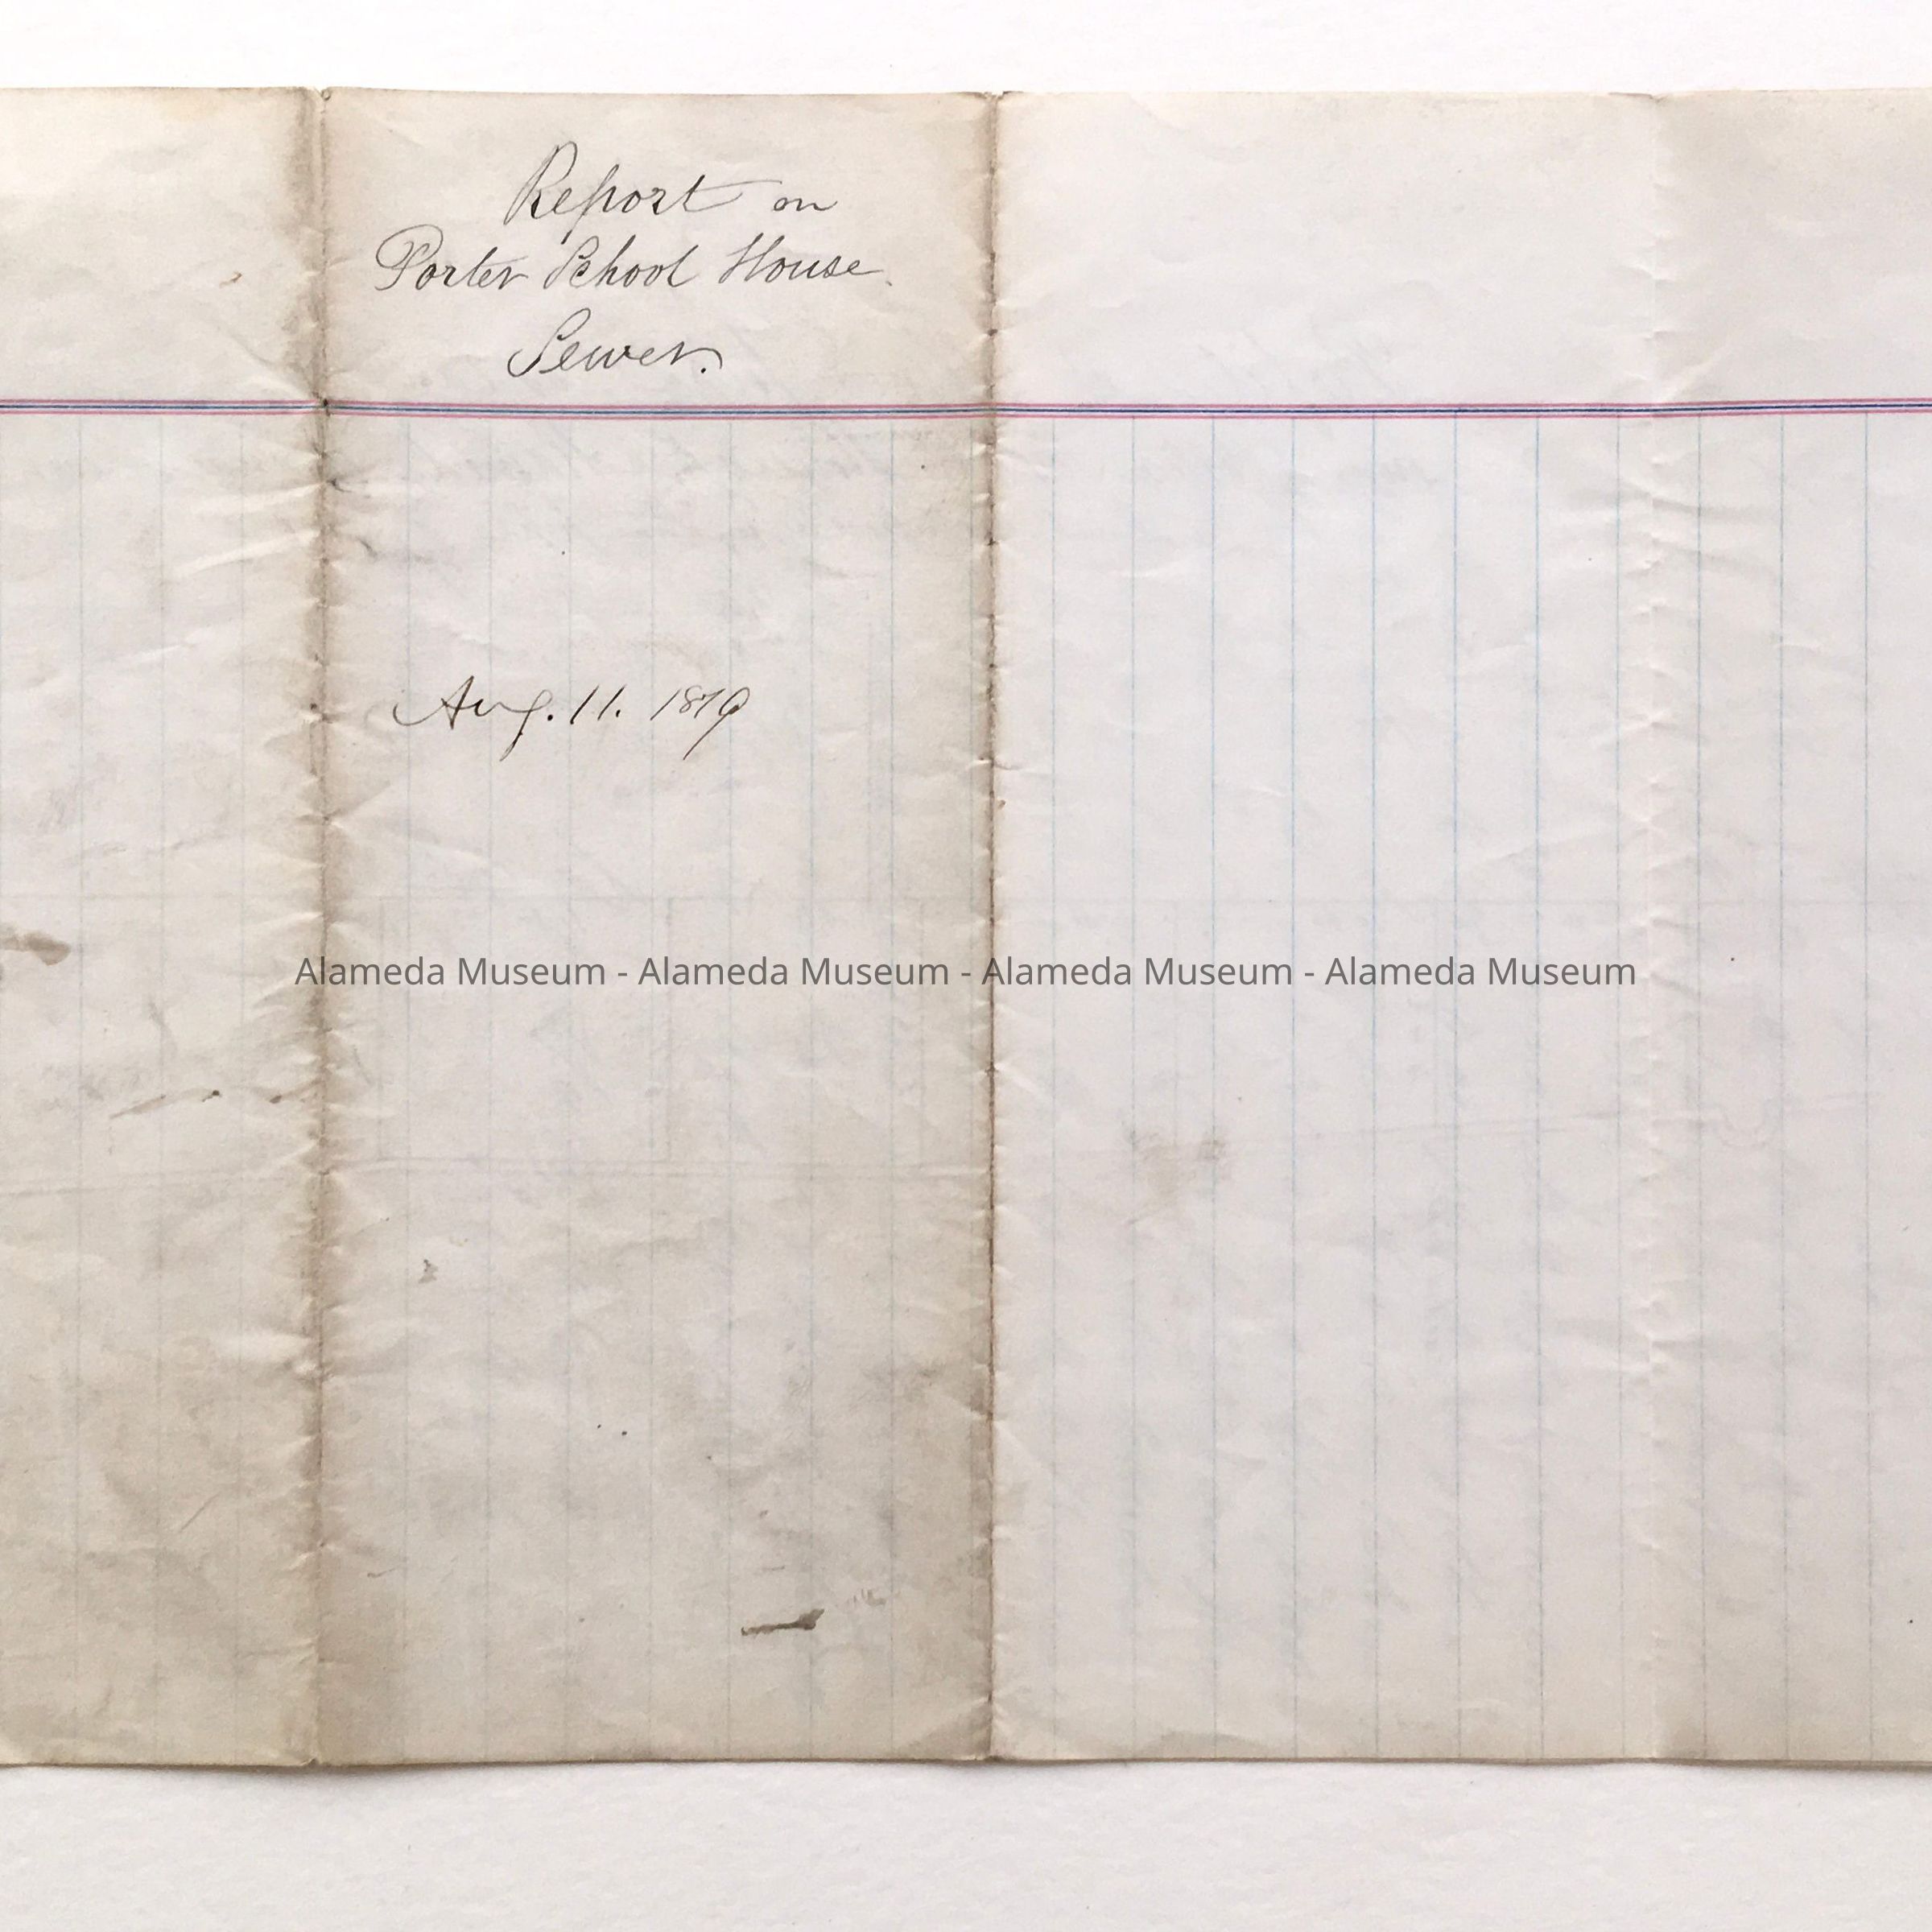 Report on
Porter School House.
Sewer.
Aug. 11. 1879
Alameda Museum - Alameda Museum - Alameda Museum - Alameda Museum